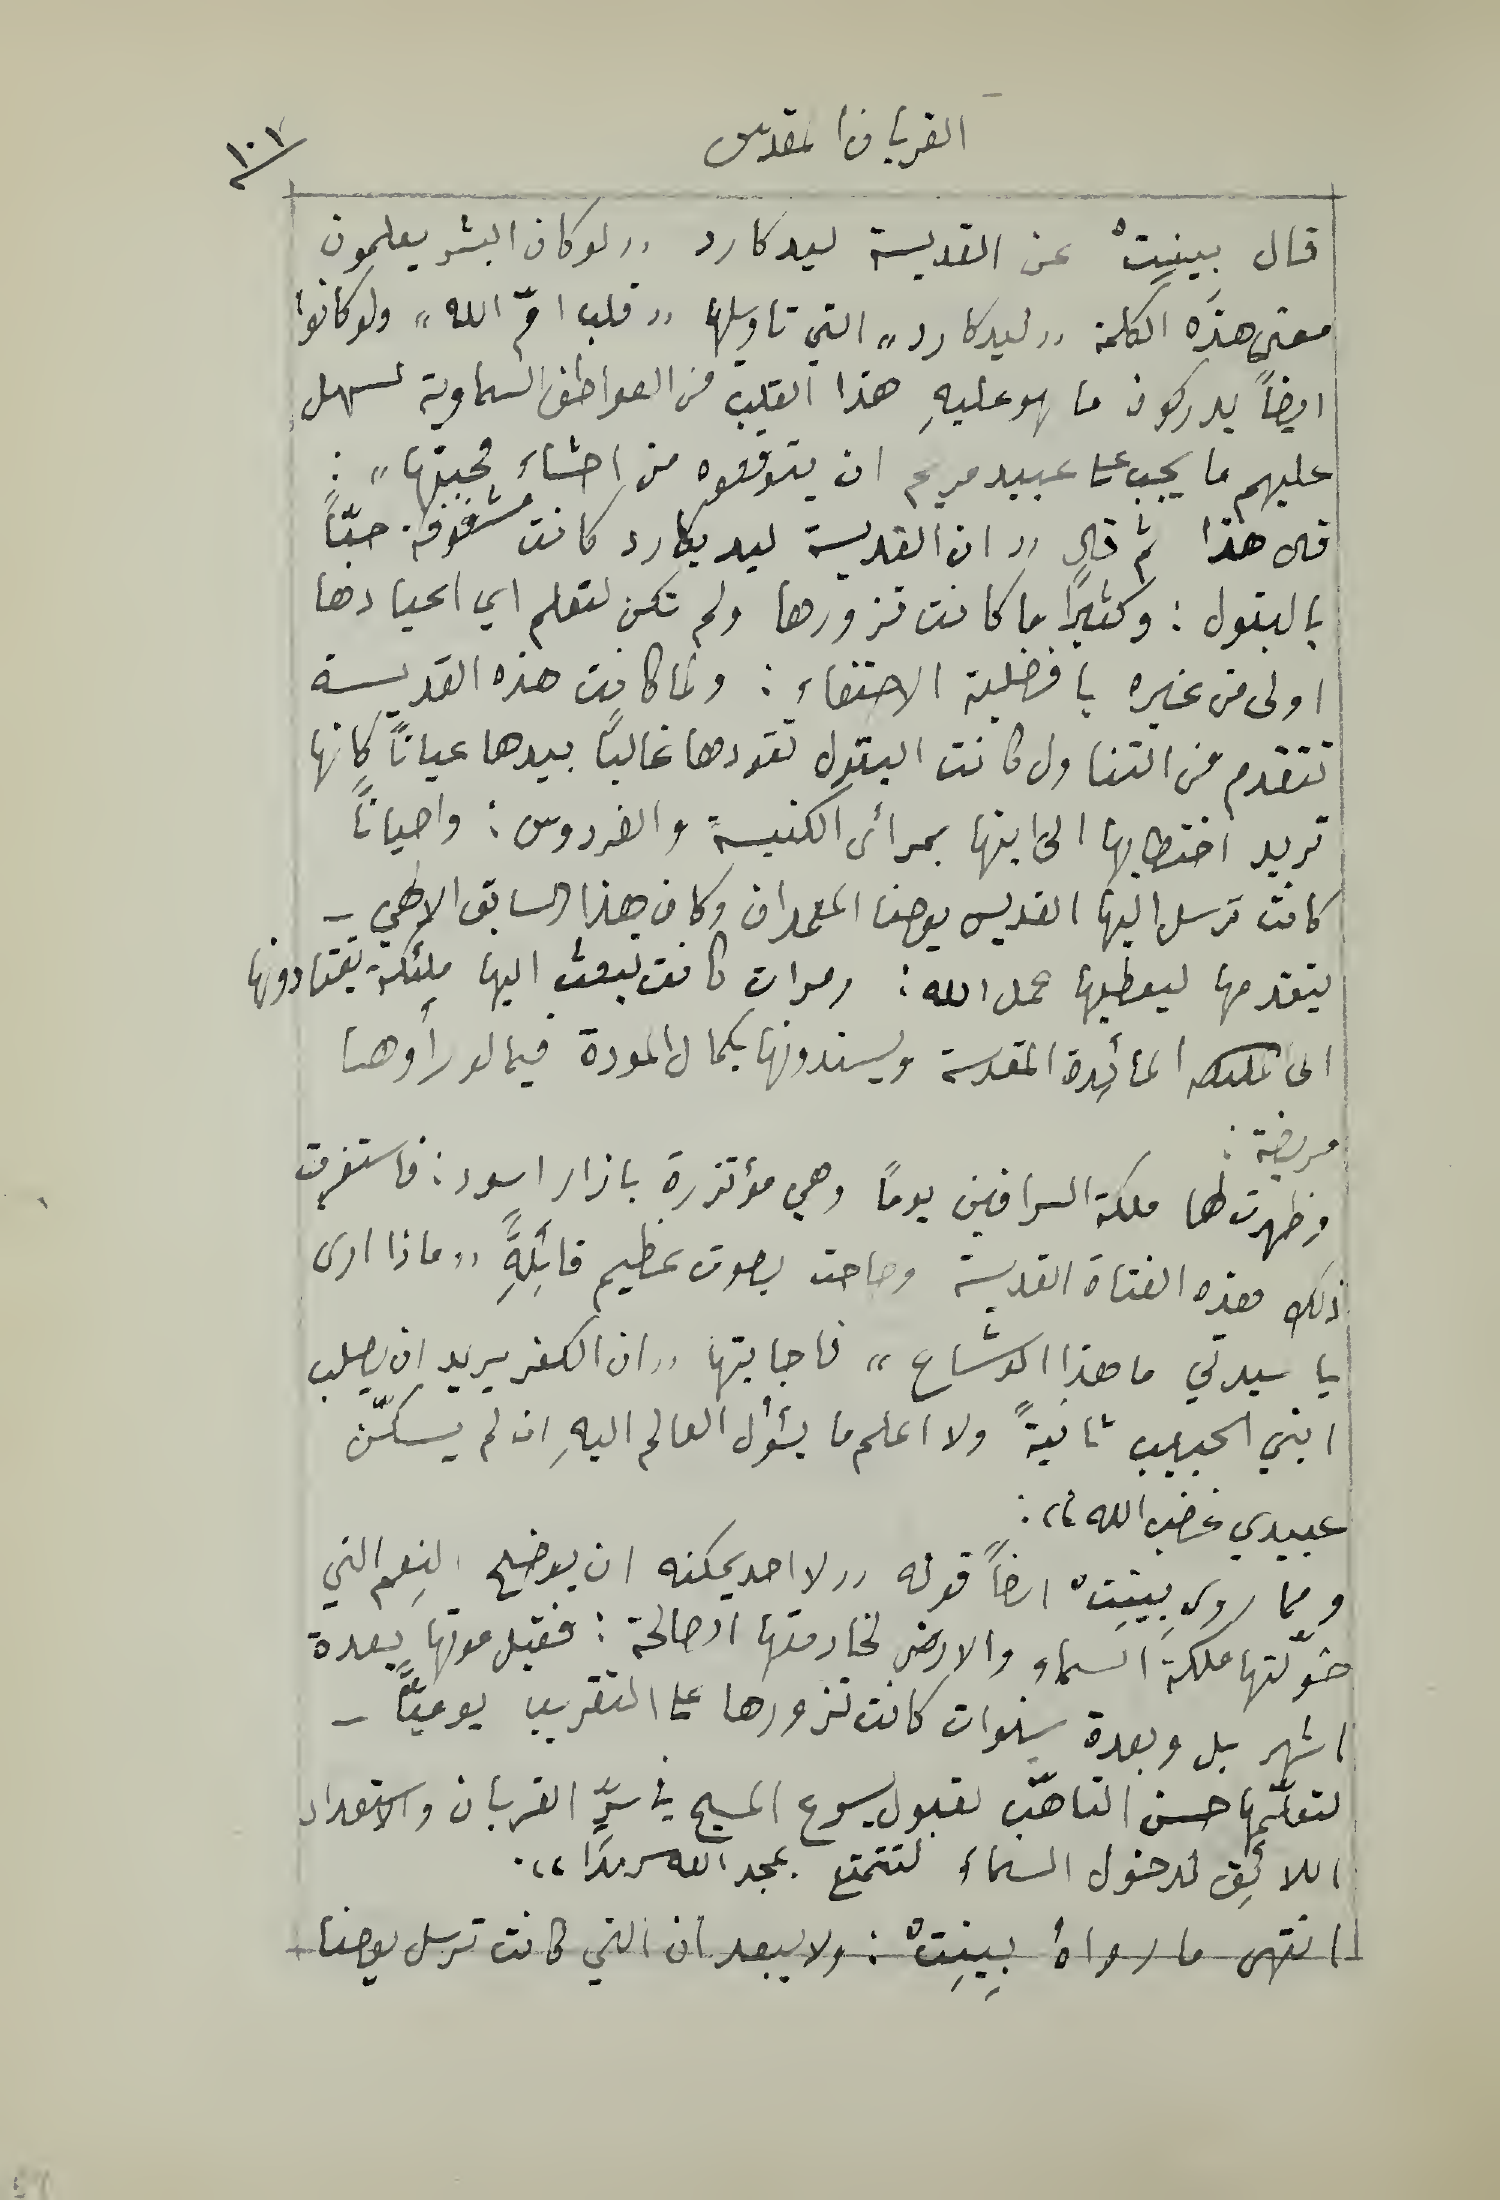 القربان المقدس
١٠٧
قال بِينِتْ عن القديسة ليدكارد ,, لو كان البشر يعلمون
معنى هذه الكلمة ,, ليدكارد ,, التي تاويلها ,, قلب امّ الله ,, ولو كانوا
ايضاً يدركون ما هو عليهِ هذا القلب من العواطف السماوية لسهل
عليهم ما يجب على عبيد مريم ان يتوقعوه من احشاء محبتها ,, :
قال هذا ثم قال ,, ان القديسة ليديكارد كانت مشغوفة حبّاً
بالبتول : وكثيراً ما كانت تزورها ولم تكن لتعلم اي اعيادها
اولى من غيره بافضلية الاحتفاء : ولما كانت هذه القديسة
تتقدم من التناول كانت البتول تقودها غالباً بيدها عياناً كانها
تريد اختطابها الى ابنها بمرأى الكنيسة والفردوس : واحياناً
كانت ترسل اليها القديس يوحنا المعمدان وكان هذا السابق الالهي –
يتقدمها ليعطيها حمل الله : ومرات كانت تبعث اليها ملئكة يقتادونها
الى المائدة المقدسة ويسندونها بكمال المودة فيما لو رأوها
مريضة :
وظهرت لها ملكة السرافين يوماً وهي مؤتزرة بازار اسود : فاستغربت
ذلك هذه الفتاة القديسة وصاحت بصوت عظيم قائلةً ,, ماذا ارى
يا سيدتي ما هذا الوشاع ,, فاجابتها ,, ان الكفر يريد ان يصلب
ابني الحبيب ثانيةً ولا اعلم ما يئول العالم اليهِ ان لم يسكّن
عبيدي غضب الله ,, :
ومما روى بِينِتْ ايضاً قوله ,, لا احد يمكنه ان يوضح النِعم التي
خوّلتها ملكة السماء والارض لخادمتها الصالحة : فقبل موتها بعدة
اشهر بل وبعدة سنوات كانت تزورها على التقريب يوميّاً –
لتعلّمها حسن التاهّب لقبول يسوع المسيح في سرِّ القربان والاستعداد
اللائق لدخول السماء لتتمتع بمجد الله سرمدًا ,, .
انتهى ما رواهُ بِينِتْ : ولا يبعد ان التي كانت ترسل يوحنا